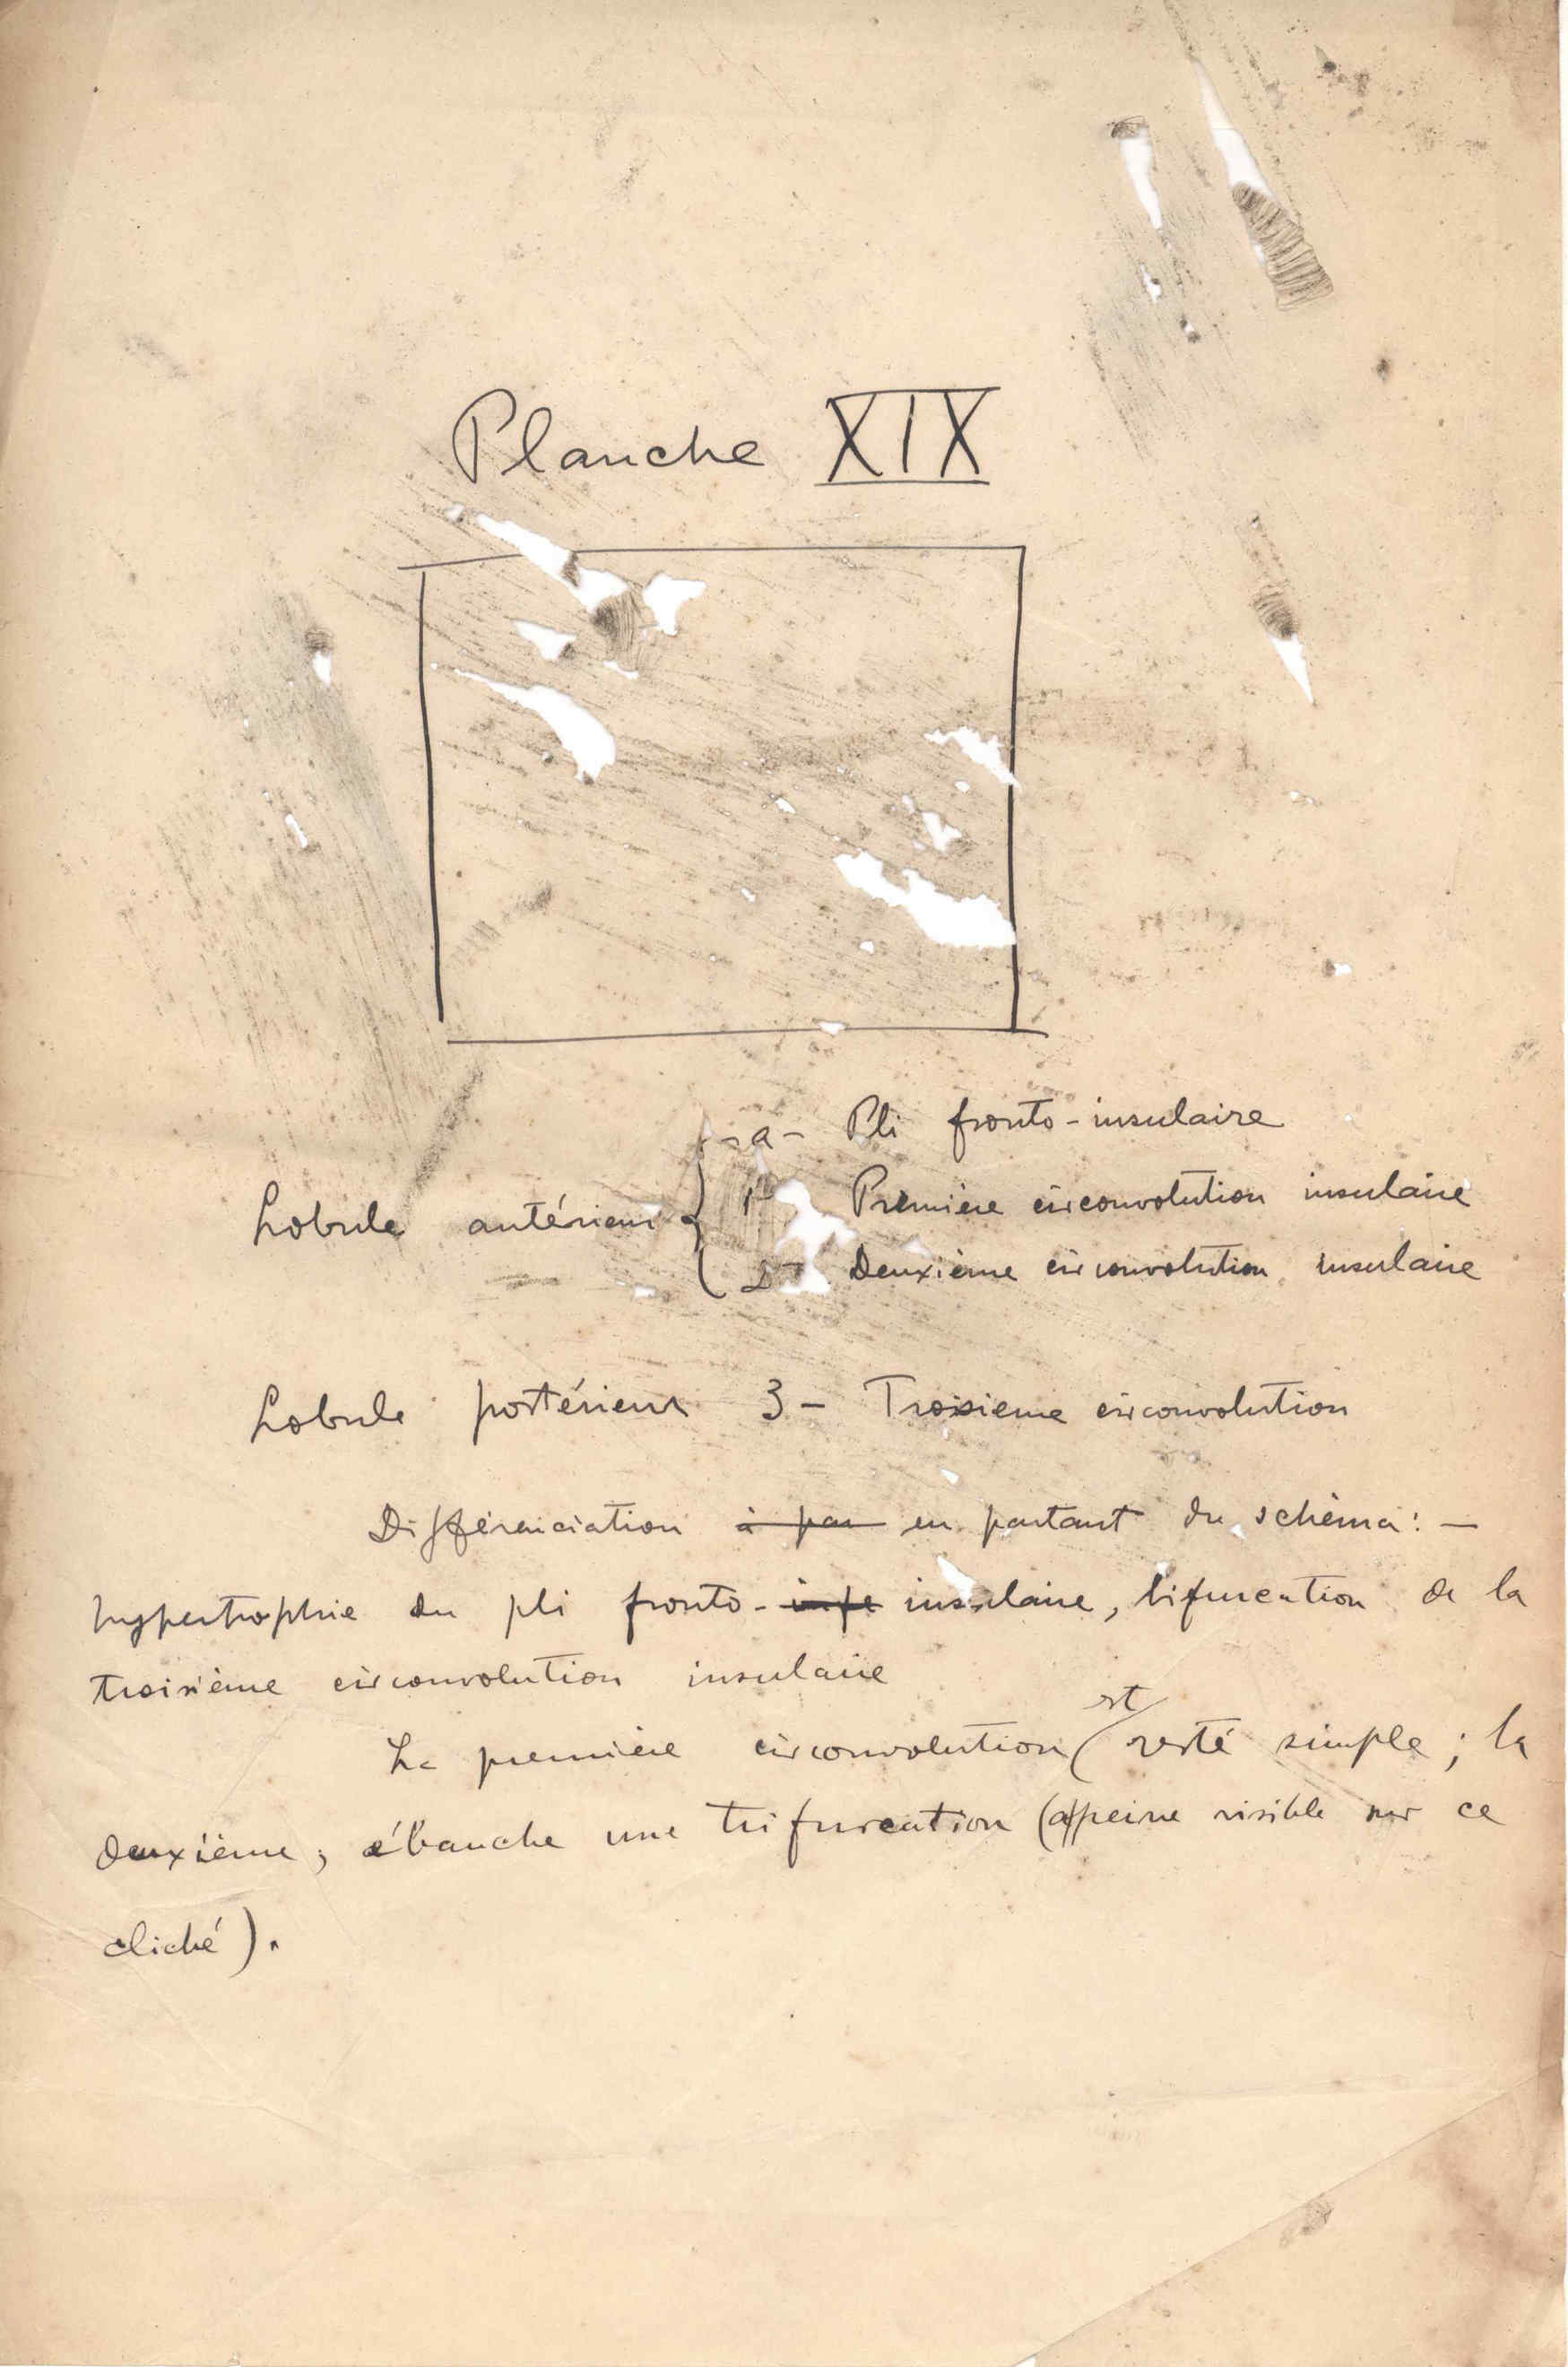 Planche XIX
a- Pli fronto-insulaire
Lobule antérieur { 1- Première circonvolution insulaire
2- Deuxième circonvolution insulaire
Lobule postérieur 3- Troisieme circonvolution
Différenciation à par en partant du schéma : —
hypertrophie du pli fronto-insu insulaire, bifurcation de la
troisième circonvolution insulaire
La première circonvolution (est resté simple ; la
deuxième, ébauche une trifurcation (à peine visible sur ce
cliché).